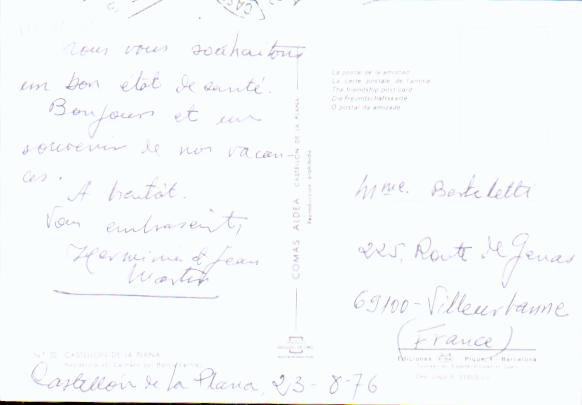 nous vous souhaitons
un bon état de santé.
Bonjours et un
souvenir de nos vacan-
ces.
A bientôt.
Vous embrassent,
Herminia et Jean
Martin
Castellón de la Plana, 23-8-76
COMAS ALDEA CASTELLON DE LA PLANA
Reproducción prohibida
La postal de la amistad
La carte postale de l'amitié
The friendship postcard
Die Freundschaftskarte
O postal da amizade
Mme. Berteletti
225, Route de Genas
69100-Villeurbanne
(France)
N.º 32 CASTELLON DE LA PLANA
Ediciones Piquer Barcelona